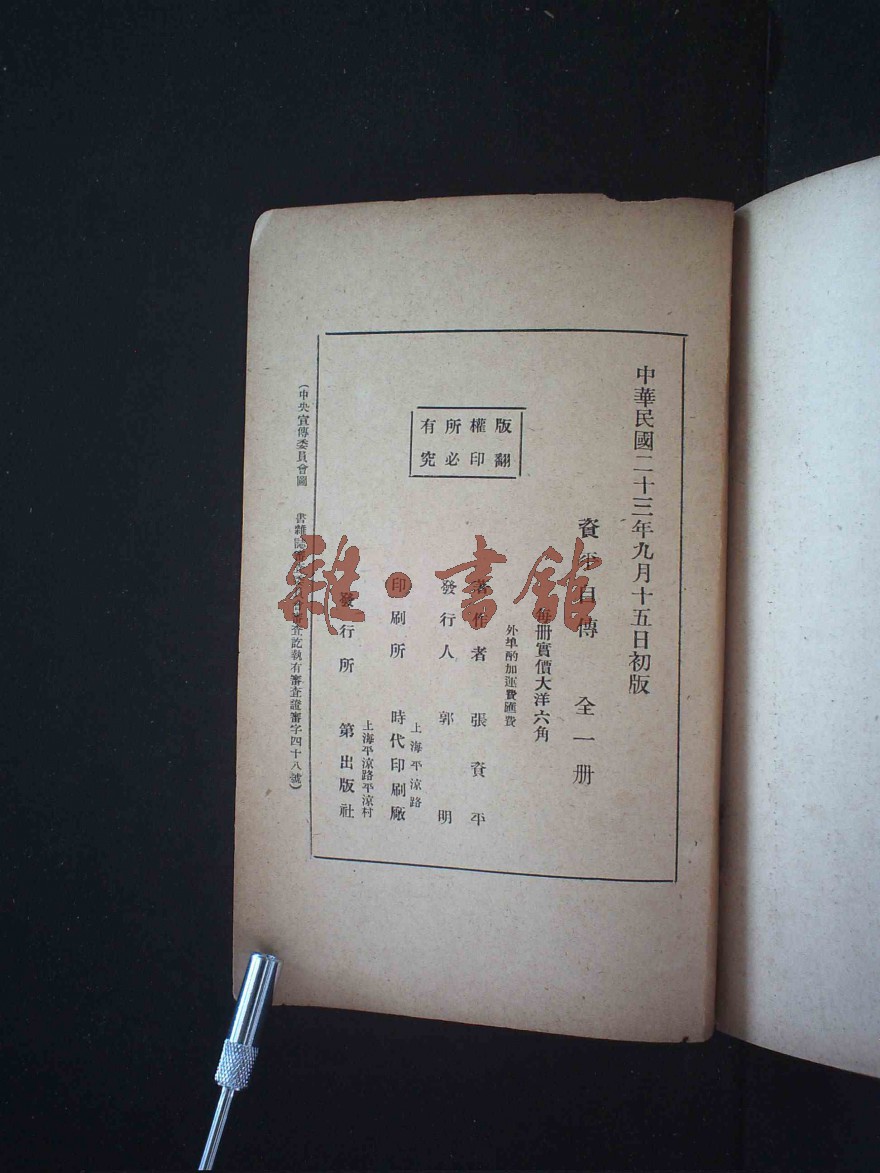 中華民國二十三年九月十五日初版
資平自傳 全一册
每册實價大洋六角
外埠酌加運費匯費
版權所有
翻印必究
著作者 張資平
發行人 郭明
上海平涼路
印刷所 時代印刷廠
上海平涼路平涼村
發行所 第出版社
(中央宣傳委員會圖 書雜 審查訖執有審查證審字四十八號)
雜·書館